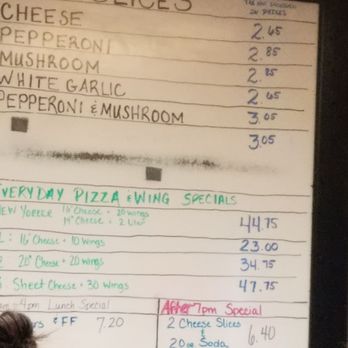 SLICES
CHEESE 2.65
PEPPERONI 2.85
MUSHROOM 2.85
WHITE GARLIC 2.65
PEPPERONI & MUSHROOM 3.05
3.05
EVERYDAY PIZZA & WING SPECIALS
NEW YORKER 16" Cheese + 20 wings
14" Cheese + 2 Liter 44.75
16" Cheese + 10 wings 23.00
20" Cheese + 20 wings 34.75
Sheet Cheese + 30 wings 47.75
4pm Lunch Special
& FF 7.20
After 7pm Special
2 Cheese Slices
&
20 oz Soda 6.40